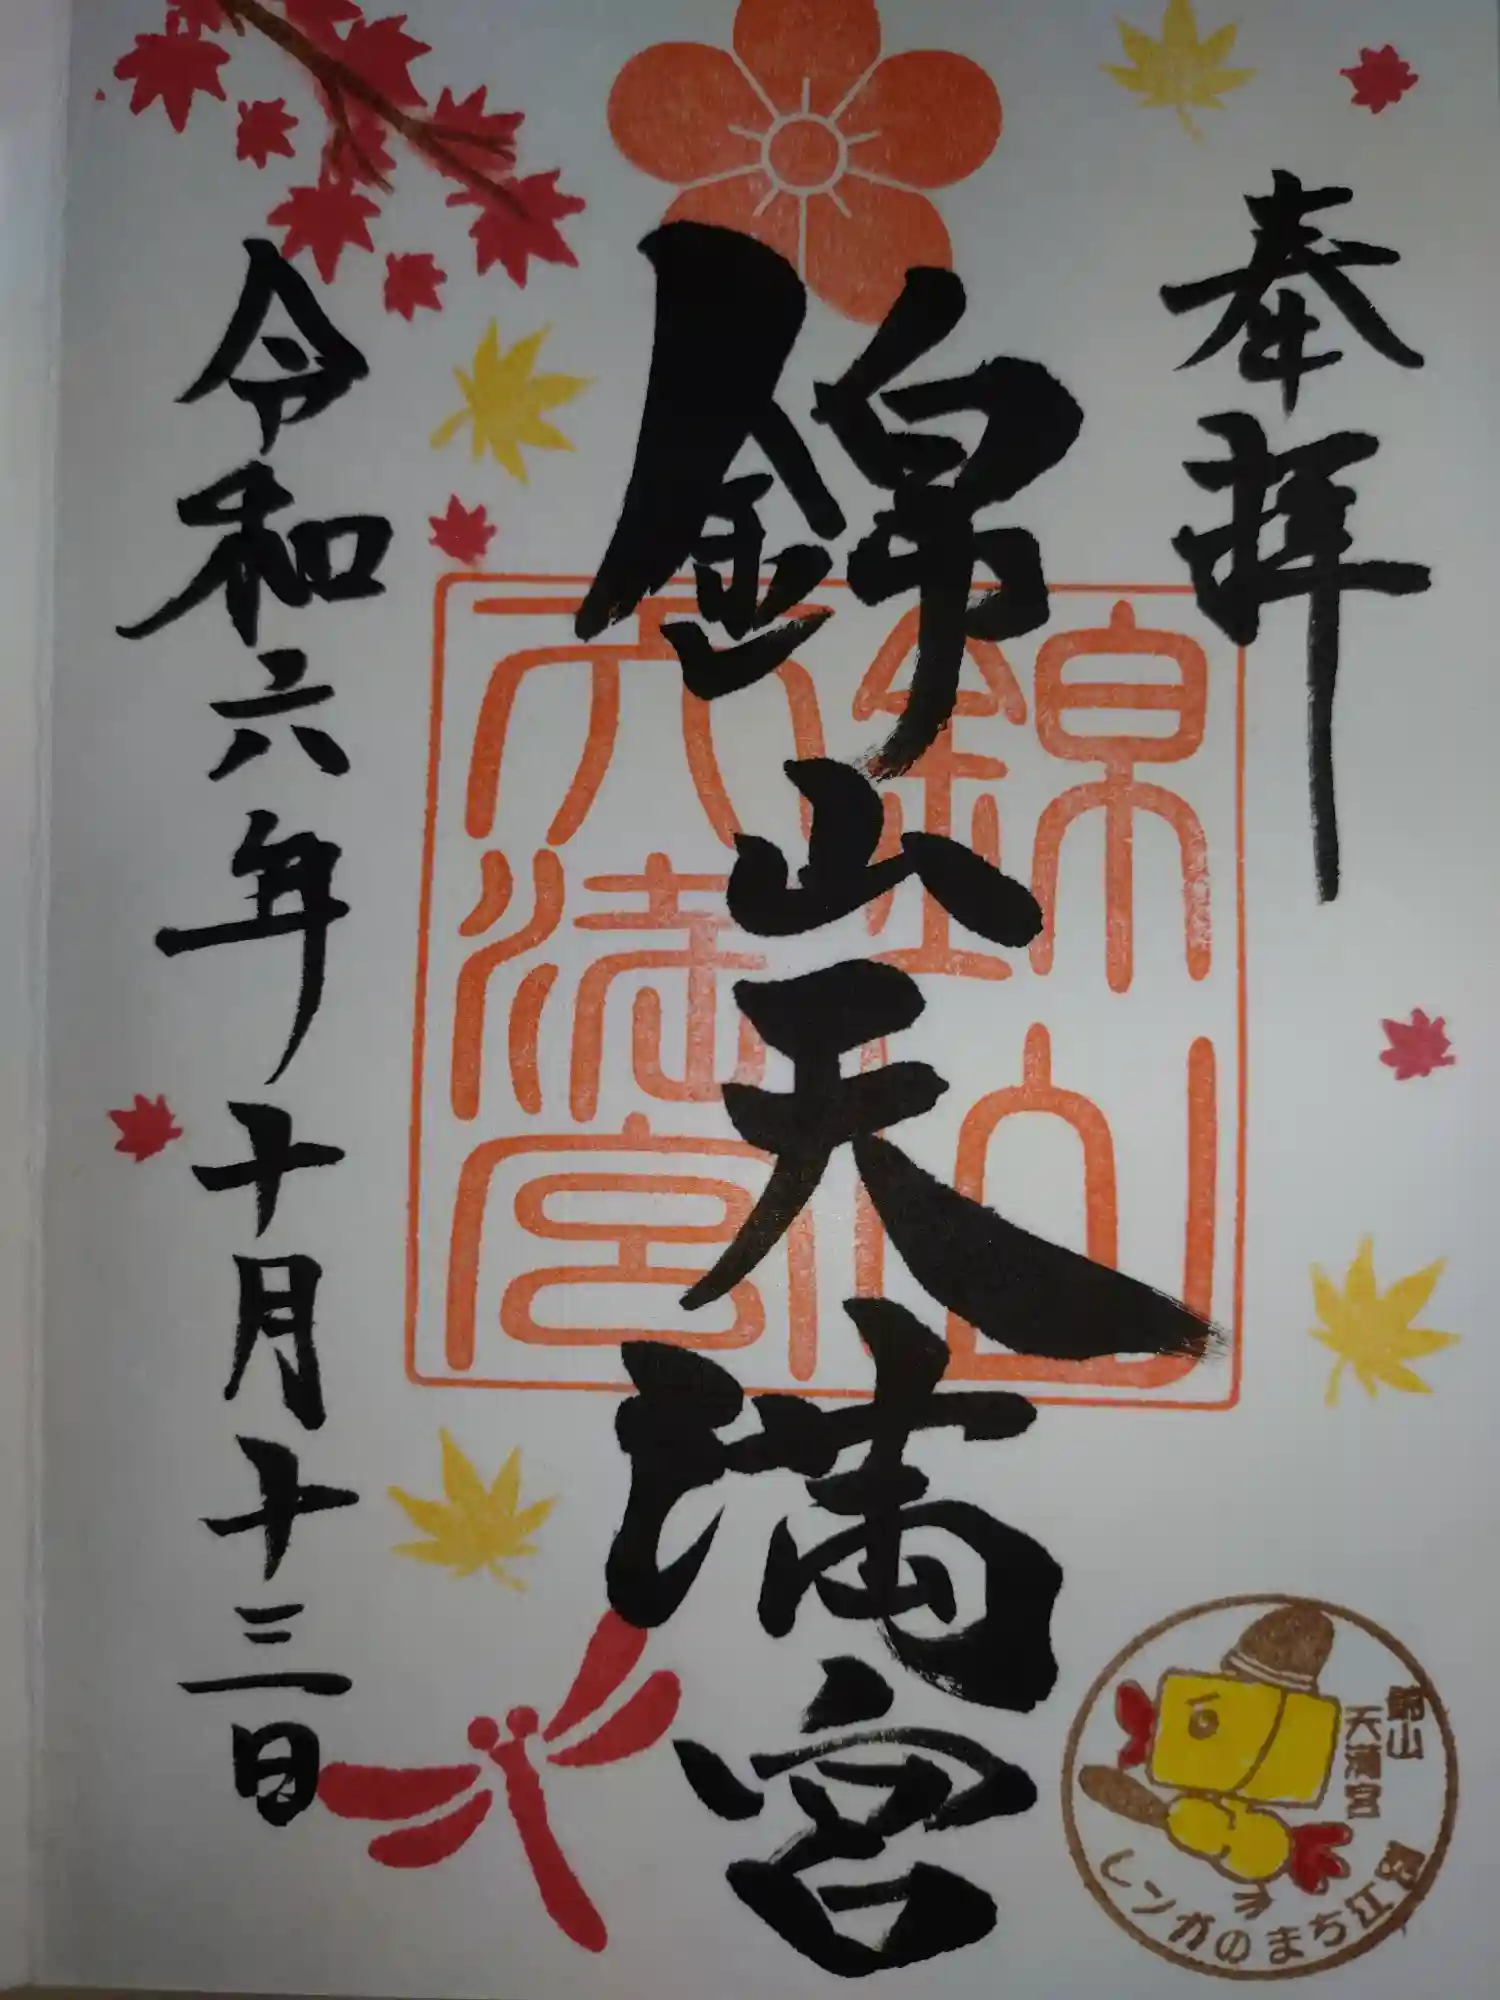 奉拝
錦山天満宮
令和六年十月十三日
錦山
天満宮
レンガのまち江別